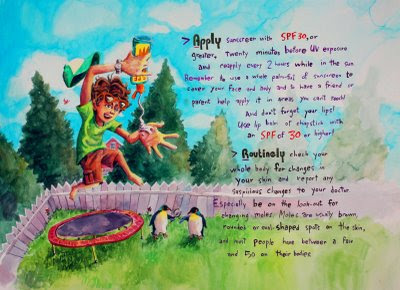 > Apply sunscreen with SPF 30 or
greater, Twenty minutes before UV exposure
and reapply every 2 hours while in the sun
Remember to use a whole palm-full of sunscreen to
cover your face and body and to have a friend or
parent help apply it in areas you can't reach!
And don't forget your lips!
Use lip balm or chapstick with
an SPF of 30 or higher!
> Routinely check your
whole body for changes in
your skin and report any
suspicious changes to your doctor
Especially be on the look-out for
changing moles. Moles are usually brown,
rounded or oval-shaped spots on the skin,
and most people have between a few
and 50 on their bodies